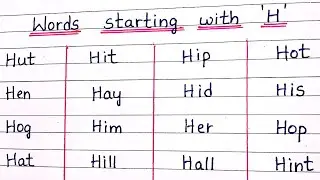 Words starting with 'H'
Hut Hit Hip Hot
Hen Hay Hid His
Hog Him Her Hop
Hat Hill Hall Hint